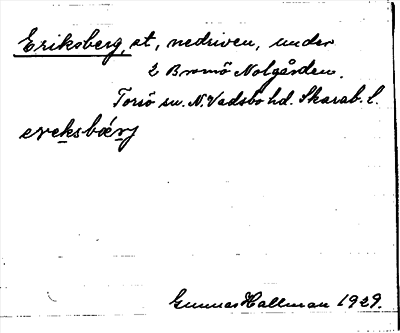 Eriksberg, st, nedriven, under
2 Bromö Nolgården.
Torsö sn. N. Vadsbo hd. Skarab. l.
ereksbærj
Gunnar Hallman 1929.